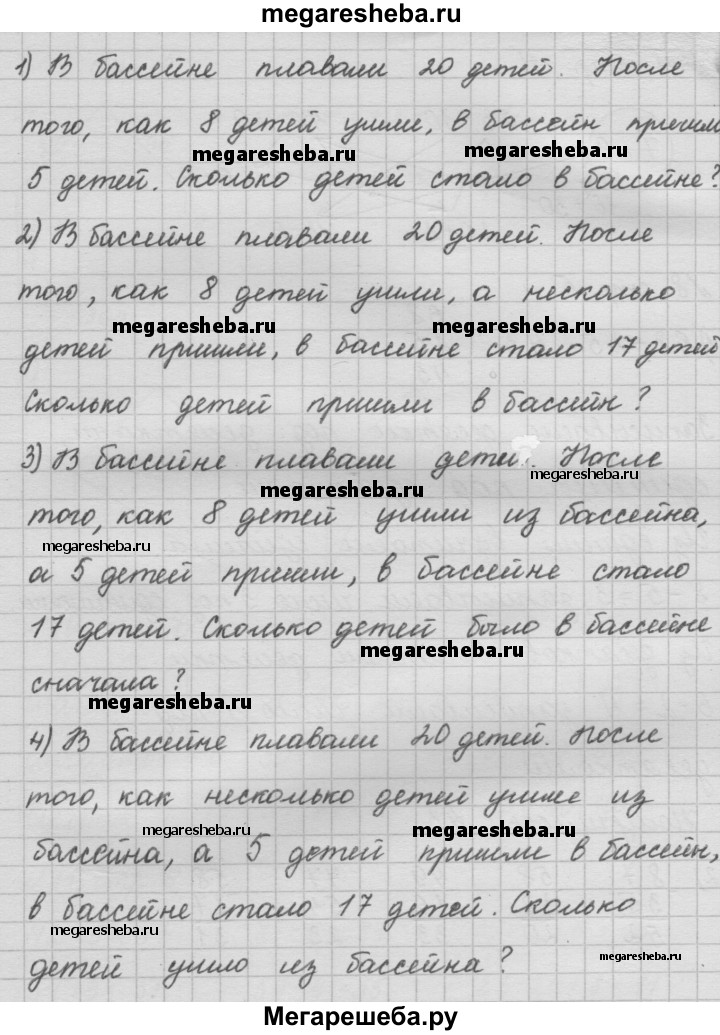 megaresheba.ru
1) В бассейне плавали 20 детей. После
того, как 8 детей ушли, в бассейн пришли
megaresheba.ru megaresheba.ru
5 детей. Сколько детей стало в бассейне?
2) В бассейне плавали 20 детей. После
того, как 8 детей ушли, а несколько
megaresheba.ru megaresheba.ru
детей пришли, в бассейне стало 17 детей
Сколько детей пришли в бассейн?
3) В бассейне плавали дети. После
megaresheba.ru megaresheba.ru
того, как 8 детей ушли из бассейна,
megaresheba.ru
а 5 детей пришли, в бассейне стало
17 детей. Сколько детей было в бассейне
megaresheba.ru
сначала?
megaresheba.ru
4) В бассейне плавали 20 детей. После
того, как несколько детей ушли из
megaresheba.ru megaresheba.ru
бассейна, а 5 детей пришли в бассейн,
в бассейне стало 17 детей. Сколько
megaresheba.ru
детей ушло из бассейна?
megaresheba.ru
Мегарешеба.ру